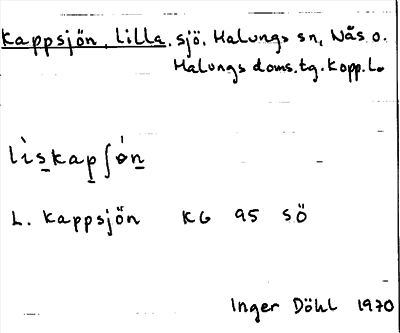 Kappsjön, lilla. sjö. Malungs sn, Nås o.
Malungs doms.tg. Kopp.L.
lìs̲kap̲ʃón̲
L. Kappsjön KG 95 SÖ
Inger Döhl 1970